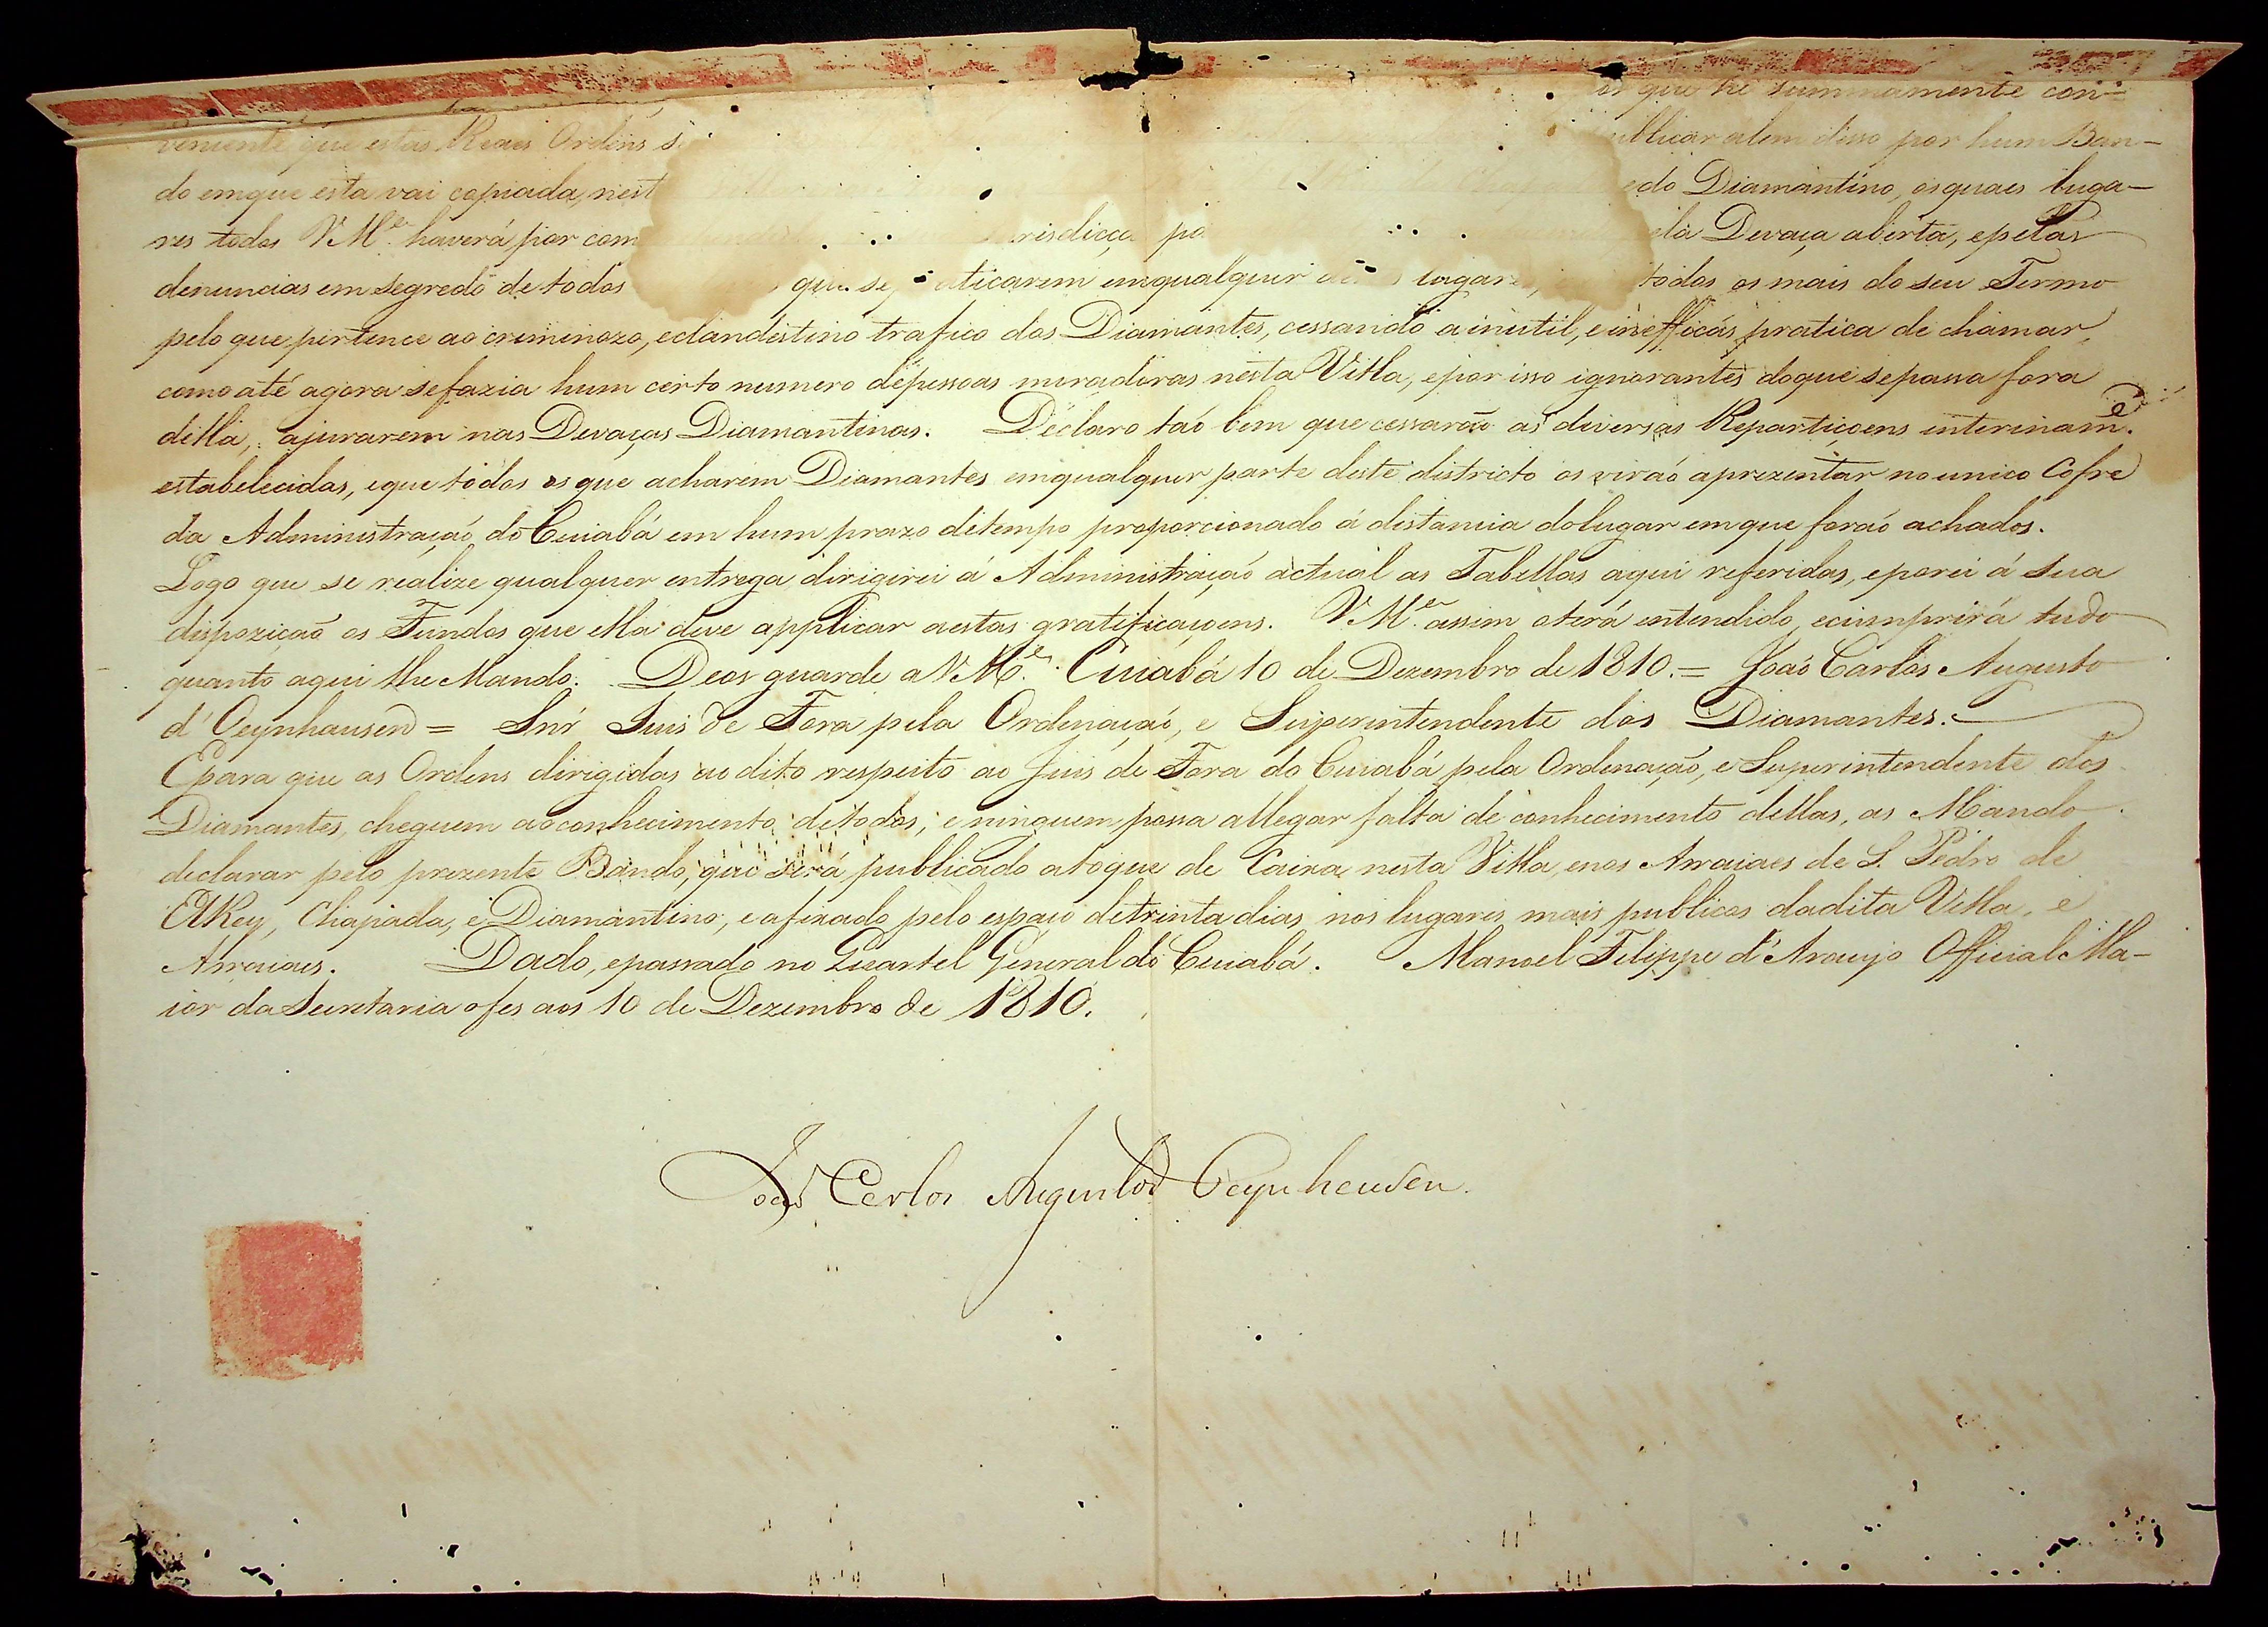 que he summamente con-
veniente que estas Reaes Ordens publicar alem disso por hum Ban-
do emque esta vai copiada, nest do Diamantino, osquaes luga-
res todos VM.ce haverá por com risdicça po Devaça aberta, epelas
denuncias em segredo de todos que se aticarem emqualquer lugar todos os mais do seu Termo
pelo que pertence ao criminozo, eclandestino trafico dos Diamantes, cessando a inutil, e inefficás pratica de chamar,
como até agora sefazia hum certo numero depessoas moradoras nesta Villa, epor isso ignorantes doque sepassa fora
della, ajurarem nas Devaças Diamantinas. Declaro taó bem que cessaraõ as diversas Repartiçoens interinam.e
estabelecidas, eque todos os que acharem Diamantes emqualquer parte deste districto os viraó aprezentar no unico Cofre
da Administraçaó do Cuiabá em hum prazo detempo proporcionado á distancia dolugar emque foraó achados.
Logo que se realize qualquer entrega, dirigirei á Administraçaó actual as Tabellas aqui referidas, eporei á sua
dispoziçaõ os Fundos que ella deve applicar aestas gratificaçoens. VM.ce assim oterá entendido, ecumprirá tudo
quanto aqui lhe Mando. Deos guarde a VM.ce Cuiabá 10 de Dezembro de 1810. = Joaó Carlos Augusto
d'Oeynhausen = Snr̃ Juis de Fora pela Ordenaçaó, e Superintendente dos Diamantes.
Epara que as Ordens dirigidas ao dito respeito ao Juis de Fora do Cuiabá pela Ordenação, e Superintendente dos
Diamantes, cheguem aoconhecimento detodos, e ninguem possa allegar falta de conhecimento dellas, as Mando
declarar pelo prezente Bando, que será publicado atoque de Caixa nesta Villa, enos Arraiaes de S. Pedro de
ElRey, Chapada, e Diamantino, e afixado pelo espaço detrinta dias nos lugares mais publicos dadita Villa, e
Arraiaes. Dado, epassado no Quartel General do Cuiabá. Manoel Felippe d'Araujo Official Ma-
ior da Secretaria ofes aos 10 de Dezembro de 1810.
Joaõ Carlos Augusto d'Oeynhausen.